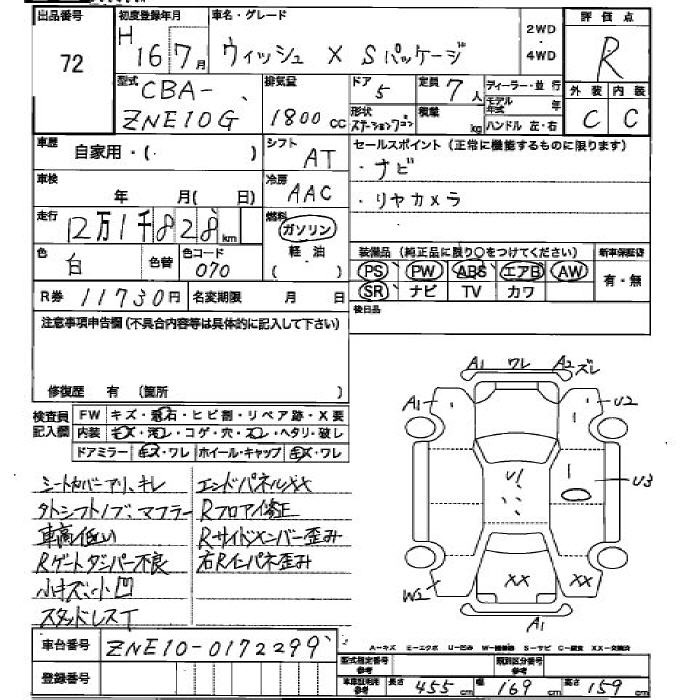 出品番号 初度登録年月 車名・グレード 2WD・4WD 評価点
72 H 16 7月 ウィッシュ X Sパッケージ R
型式 排気量 ドア 定員 ディーラー・並行 外装 内装
CBA- 5 7人 モデル年式 年 C C
ZNE10G 1800cc 形状 ステーションワゴン 積載 kg ハンドル 左・右
車歴 自家用・( ) シフト AT セールスポイント (正常に機能するものに限ります)
・ナビ
車検 年 月(日) 冷房 AAC ・リヤカメラ
走行 12万1千828km 燃料 ガソリン 軽油
色 白 色替 色コード 070
装備品 (純正品に限り○をつけてください) 新車保証書
PS PW ABS エアB AW 有・無
SR ナビ TV カワ
R券 11730円 名変期限 月 日 後日品
注意事項申告欄(不具合内容等は具体的に記入して下さい)
修復歴 有 (箇所 )
検査員記入欄 FW キズ・飛石・ヒビ割・リペア跡・X要
内装 キズ・汚レ・コゲ・穴・スレ・ヘタリ・破レ
ドアミラー キズ・ワレ ホイール・キャップ キズ・ワレ
シートカバーアリ、キレ エンドパネルXX
タトシフトノブ、マフラー Rフロアイ修正
車高低い Rサイドメンバー歪み
Rゲートダンパー不良 右Rインパネ歪み
小キズ、小凹
スタッドレスT
A1 ワレ A2 ズレ
A1 U2
U1 U3
W2 XX XX
A1
車台番号 ZNE10-0172299
A-キズ E-エクボ U-凹み S-サビ
登録番号 型式指定番号 参考 類別区分番号 参考
車庫証明用 参考 長さ 455cm 幅 169cm 高さ 159cm